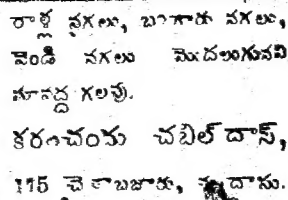 రాళ్ల నగలు, బంగారు నగలు,
వెండి నగలు మొదలుగునవి
మావద్ద గలవు.
కరంచందు చబిల్ దాస్,
115 చైనాబజారు, మద్రాసు.